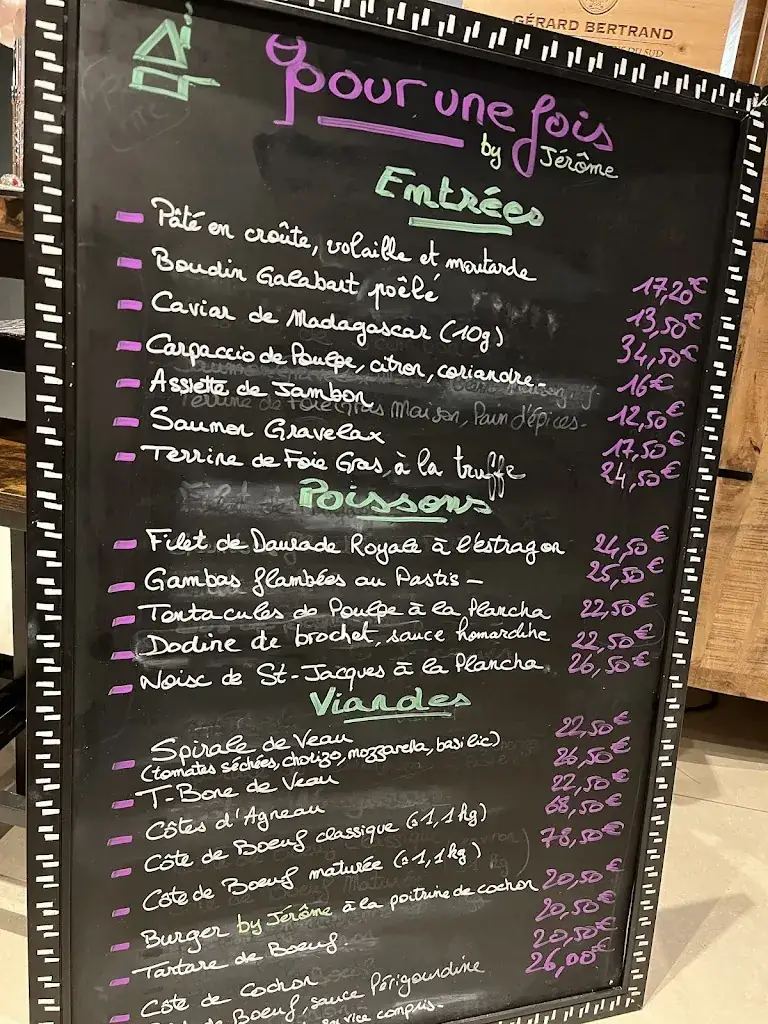 GÉRARD BERTRAND
pour une fois
by Jérôme
Entrées
Pâté en croûte, volaille et moutarde 17,20€
Boudin Galabart poêlé 13,50€
Caviar de Madagascar (10g) 34,50€
Carpaccio de Poulpe, citron, coriandre - 16€
Assiette de Jambon 12,50€
Terrine de Foie Gras Maison, Pain d'épices -
Saumon Gravelax 17,50€
Terrine de Foie Gras à la truffe 24,50€
Poissons
Filet de Daurade Royale à l'estragon 24,50€
Gambas flambées au Pastis - 25,50€
Tentacules de Poulpe à la Plancha 22,50€
Dodine de brochet, sauce homardine 22,50€
Noix de St-Jacques à la Plancha 26,50€
Viandes
Spirale de Veau 22,50€
(tomates séchées, chorizo, mozzarella, basilic)
T-Bone de Veau 26,50€
Côtes d'Agneau 22,50€
Côte de Boeuf classique (±1,1kg) 68,50€
Côte de Boeuf maturée (±1,1kg) 78,50€
Burger by Jérôme à la poitrine de cochon 20,50€
Tartare de Boeuf. 20,50€
Côte de Cochon 20,50€
de Boeuf, sauce Périgourdine 26,00€
service compris.